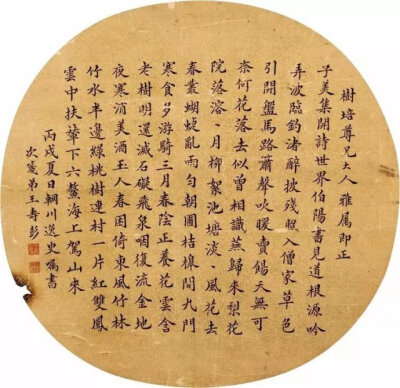 樹培尊兄大人雅属即正
子美集開詩世界伯陽書見道根源吟
弄波臨釣渚醉披残照入僧家草色
引開盤馬路蕭聲吹暖賣餳天無可
奈何花落去似曾相識燕歸來梨花
院落溶〻月柳絮池塘淡〻風花去
春叢蝴蝶亂雨匀朝圃桔槔閒九門
寒食多游騎三月春陰正養花雲含
老樹明還滅石礙飛泉咽復流金地
夜寒消美酒玉人春困倚東風竹林
竹水半邊綠桃樹連村一片紅雙鳳
雲中扶輦下六鰲海上駕山來
丙戌夏日輞川逸史囑書
次篯弟王壽彭